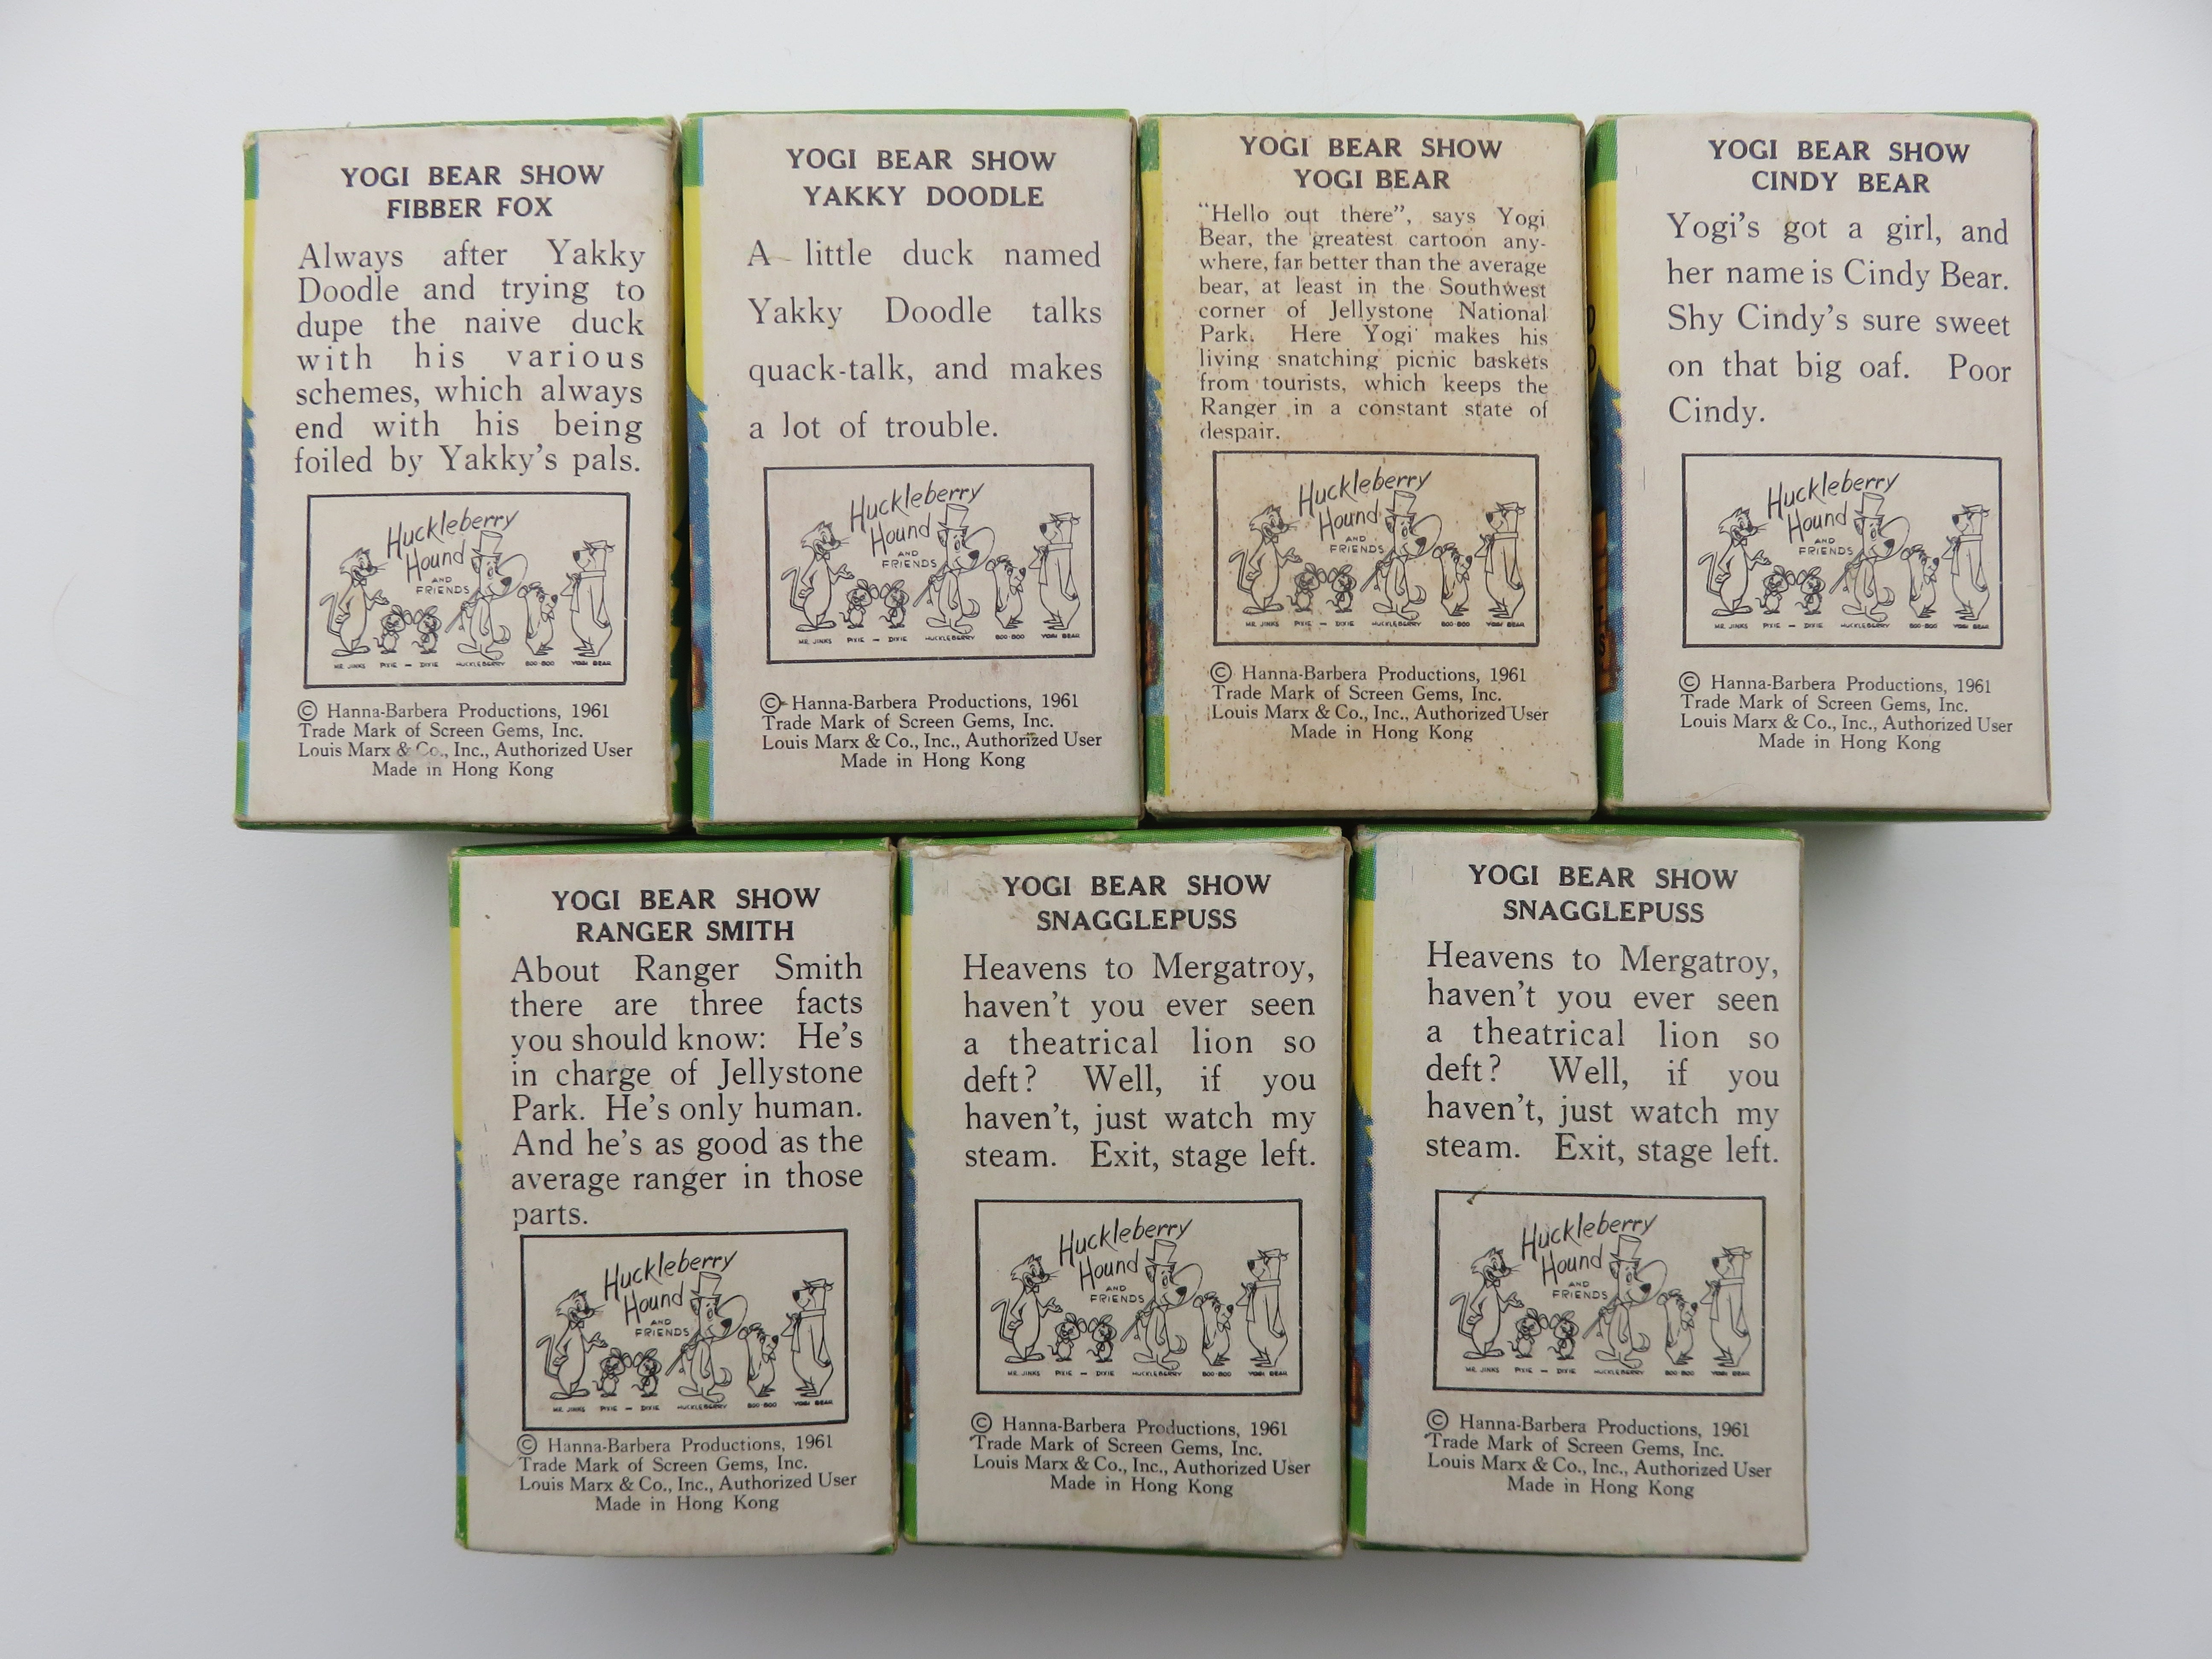 YOGI BEAR SHOW
FIBBER FOX
Always after Yakky
Doodle and trying to
dupe the naive duck
with his various
schemes, which always
end with his being
foiled by Yakky's pals.
Huckleberry
Hound
AND
FRIENDS
MR. JINKS PIXIE – DIXIE HUCKLEBERRY BOO-BOO YOGI BEAR
© Hanna-Barbera Productions, 1961
Trade Mark of Screen Gems, Inc.
Louis Marx & Co., Inc., Authorized User
Made in Hong Kong
YOGI BEAR SHOW
YAKKY DOODLE
A little duck named
Yakky Doodle talks
quack-talk, and makes
a lot of trouble.
Huckleberry
Hound
AND
FRIENDS
MR. JINKS PIXIE – DIXIE HUCKLEBERRY BOO-BOO YOGI BEAR
© Hanna-Barbera Productions, 1961
Trade Mark of Screen Gems, Inc.
Louis Marx & Co., Inc., Authorized User
Made in Hong Kong
YOGI BEAR SHOW
YOGI BEAR
"Hello out there", says Yogi
Bear, the greatest cartoon any-
where, far better than the average
bear, at least in the Southwest
corner of Jellystone National
Park. Here Yogi makes his
living snatching picnic baskets
from tourists, which keeps the
Ranger in a constant state of
despair.
Huckleberry
Hound
AND
FRIENDS
MR. JINKS PIXIE – DIXIE HUCKLEBERRY BOO-BOO YOGI BEAR
© Hanna-Barbera Productions, 1961
Trade Mark of Screen Gems, Inc.
Louis Marx & Co., Inc., Authorized User
Made in Hong Kong
YOGI BEAR SHOW
CINDY BEAR
Yogi's got a girl, and
her name is Cindy Bear.
Shy Cindy's sure sweet
on that big oaf. Poor
Cindy.
Huckleberry
Hound
AND
FRIENDS
MR. JINKS PIXIE – DIXIE HUCKLEBERRY BOO-BOO YOGI BEAR
© Hanna-Barbera Productions, 1961
Trade Mark of Screen Gems, Inc.
Louis Marx & Co., Inc., Authorized User
Made in Hong Kong
YOGI BEAR SHOW
RANGER SMITH
About Ranger Smith
there are three facts
you should know: He's
in charge of Jellystone
Park. He's only human.
And he's as good as the
average ranger in those
parts.
Huckleberry
Hound
AND
FRIENDS
MR. JINKS PIXIE – DIXIE HUCKLEBERRY BOO-BOO YOGI BEAR
© Hanna-Barbera Productions, 1961
Trade Mark of Screen Gems, Inc.
Louis Marx & Co., Inc., Authorized User
Made in Hong Kong
YOGI BEAR SHOW
SNAGGLEPUSS
Heavens to Mergatroy,
haven't you ever seen
a theatrical lion so
deft? Well, if you
haven't, just watch my
steam. Exit, stage left.
Huckleberry
Hound
AND
FRIENDS
MR. JINKS PIXIE – DIXIE HUCKLEBERRY BOO-BOO YOGI BEAR
© Hanna-Barbera Productions, 1961
Trade Mark of Screen Gems, Inc.
Louis Marx & Co., Inc., Authorized User
Made in Hong Kong
YOGI BEAR SHOW
SNAGGLEPUSS
Heavens to Mergatroy,
haven't you ever seen
a theatrical lion so
deft? Well, if you
haven't, just watch my
steam. Exit, stage left.
Huckleberry
Hound
AND
FRIENDS
MR. JINKS PIXIE – DIXIE HUCKLEBERRY BOO-BOO YOGI BEAR
© Hanna-Barbera Productions, 1961
Trade Mark of Screen Gems, Inc.
Louis Marx & Co., Inc., Authorized User
Made in Hong Kong